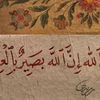 اللّٰه إِنَّ اللّٰهَ بَصِيرٌ بِالْعِ